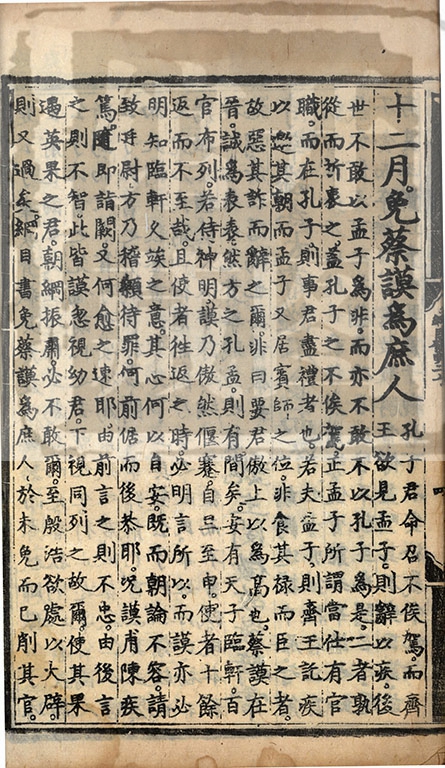 十二月。免蔡謨爲庶人
孔子君命召不俟駕。而齊
王欲見孟子。則辭以疾。後
世不敢以孟子爲非。而亦不敢不以孔子爲是。二者孰
從而折衷之。蓋孔子之不俟駕。正孟子所謂當仕有官
職。而在孔子。則事君盡禮者也。若夫孟子。則齊王託疾
以邀其朝。而孟子又居賓師之位。非食其祿而臣之者。
故惡其詐而辭之爾。非曰要君傲上以爲高也。蔡謨在
晉誠爲表表。然方之孔孟則有間矣。安有天子臨軒。百
官布列。若侍神明。謨乃傲然偃蹇。自旦至申。使者十餘
返而不至哉。且使者往返之時。必明言所以。而謨亦必
明知臨軒久竢之意。其心何以自安。既而朝論不容。請
致廷尉。方乃稽顙待罪。何前倨而後恭耶。況謨甫陳疾
篤。隨即詣闕。又何愈之速耶。由前言之則不忠。由後言
之則不智。此皆謨忽視幼君。下視同列之故爾。使其果
遇英果之君。朝綱振肅。必不敢爾。至殷浩欲處以大辟。
則又過矣。綱目書免蔡謨爲庶人。於未免而已削其官。